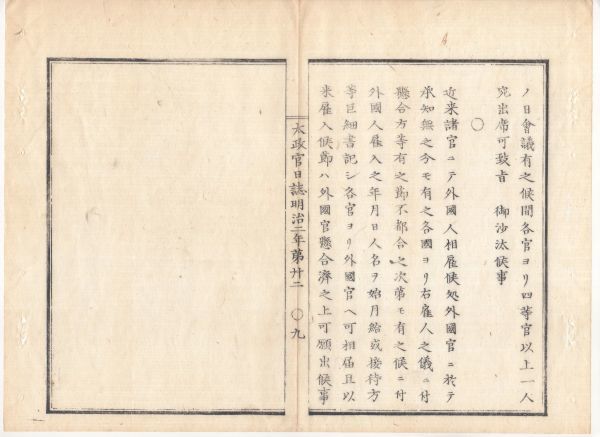 ノ日會議有之候間各官ヨリ四等官以上一人
宛出席可致旨　御沙汰候事
○
近来諸官ニテ外國人相雇候処外國官ニ於テ
承知無之分モ有之各國ヨリ右雇人之儀ニ付
懸合方等有之節不都合之次第モ有之候ニ付
外國人雇入之年月日人名ヲ始月給或接待方
等巨細書記シ各官ヨリ外國官ヘ可相届且以
来雇入候節ハ外國官懸合濟之上可願出候事
太政官日誌明治二年第廿二　○九